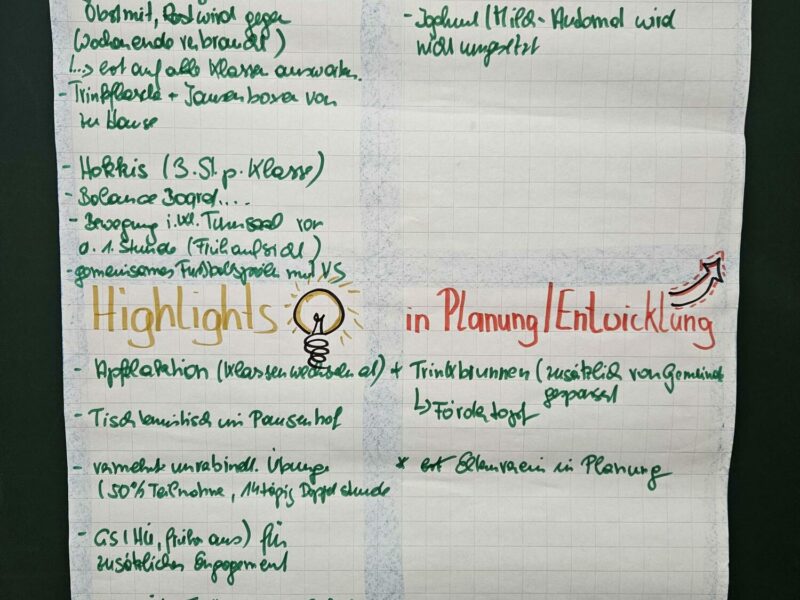 Obst mit, Rest wird gegen
(Wochenende verbraucht)
↳ evt auf alle Klassen ausweiten.
- Trinkflasche + Jausenboxen von
zu Hause
- Hokkis (3. St. p. Klasse)
- Balance Board....
- Bewegung i.
Turnsaal vor
d. 1. Stunde (Frühaufsicht)
- gemeinsames Fußballspielen mit VS
- Joghurt/Milch-Automat wird
nicht umgesetzt
Highlights
- Apfelaktion (Klassen wechseln ab)
- Tischtennistisch im Pausenhof
- vermehrt unverbindl. Übung
(50% Teilnahme, 14tägig Doppelstunde
- GS (
für
zusätzliches Engagement
in Planung/Entwicklung
+ Trinkbrunnen (zusätzlich von Gemeinde
gesponsert
↳ Fördertopf
* evt Elternverein in Planung